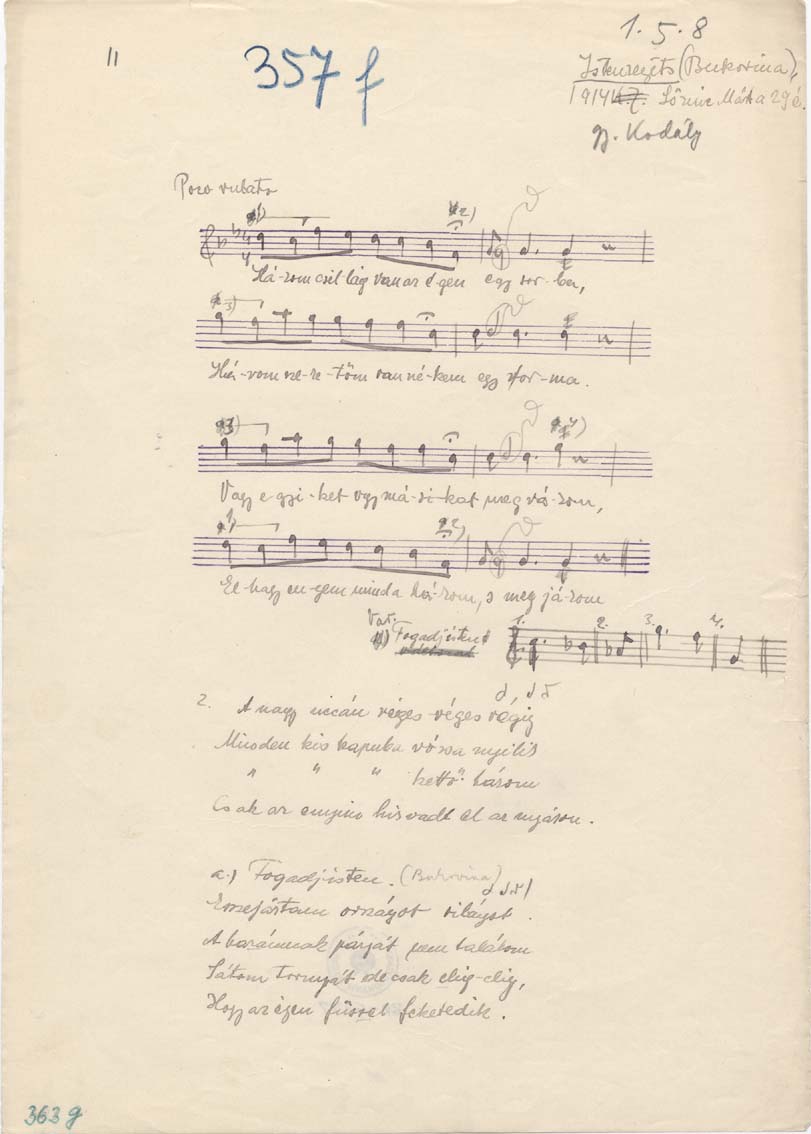 11
357 f
1.5.8
Istensegíts (Bukovina),
1914 Lőrinc Márta 29 é.
gy. Kodály
Poco rubato
Há-rom csil-lag van az é-gen egy sor-ba,
Há-rom sze-re-tőm van né-kem egy for-ma.
Vagy e-gyi-ket vgy má-si-kat meg vá-rom,
El-hagy en-gem mind a há-rom, s meg já-rom
Var.
Fogadjisten
1. 2. 3. 4.
2. A nagy uccán véges-végес végig
Minden kis kapuba rózsa nyílik
" " " kettő három
Csak az enyim hirvadt el az nyáron.
a.) Fogadjisten. (Bukovina)
Összejártam országot világot.
A babámnak párját nem találom
Látom tornyát de csak elig-elig,
Hogy az égen füsttel feketedik.
363 g